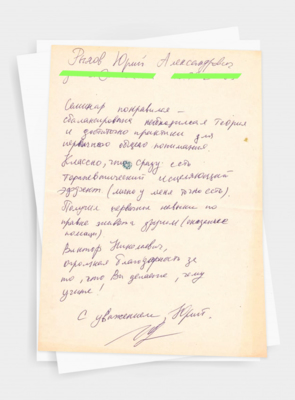 Рысов Юрий Александрович
Семинар понравился –
сбалансирован необходимая теория
и достаточно практики для
первичного общего понимания.
Классно, что сразу есть
терапевтический исцеляющий
эффект (лично у меня точно есть).
Получил первичные навыки по
помощи)
Виктор Николаевич,
огромная Благодарность за
то, что Вы делаете, чему
учите!
С уважением, Юрий.